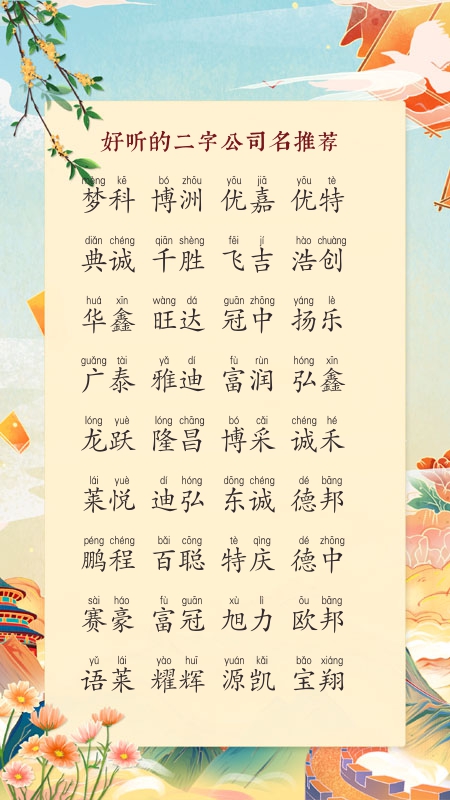 好听的二字公司名推荐
mèng kē bó zhōu yōu jiā yōu tè
梦科 博洲 优嘉 优特
diǎn chéng qiān shèng fēi jí hào chuàng
典诚 千胜 飞吉 浩创
huá xīn wàng dá guān zhōng yáng lè
华鑫 旺达 冠中 扬乐
guǎng tài yǎ dí fù rùn hóng xīn
广泰 雅迪 富润 弘鑫
lóng yuè lóng chāng bó cǎi chéng hé
龙跃 隆昌 博采 诚禾
lái yuè dí hóng dōng chéng dé bāng
莱悦 迪弘 东诚 德邦
péng chéng bǎi cōng tè qìng dé zhōng
鹏程 百聪 特庆 德中
sài háo fù guān xù lì ōu bāng
赛豪 富冠 旭力 欧邦
yǔ lái yào huī yuán kǎi bǎo xiáng
语莱 耀辉 源凯 宝翔